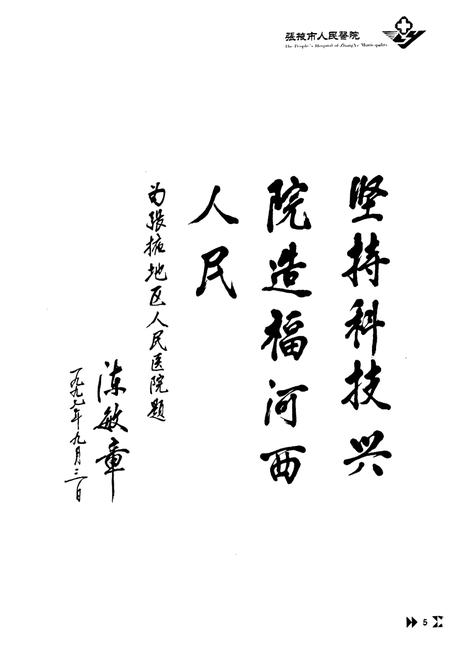 張掖市人民醫院
The People's Hospital of ZhangYe Municipality
坚持科技兴
院造福河西
人民
为張掖地区人民医院题
陈敏章
一九九七年九月三日
5